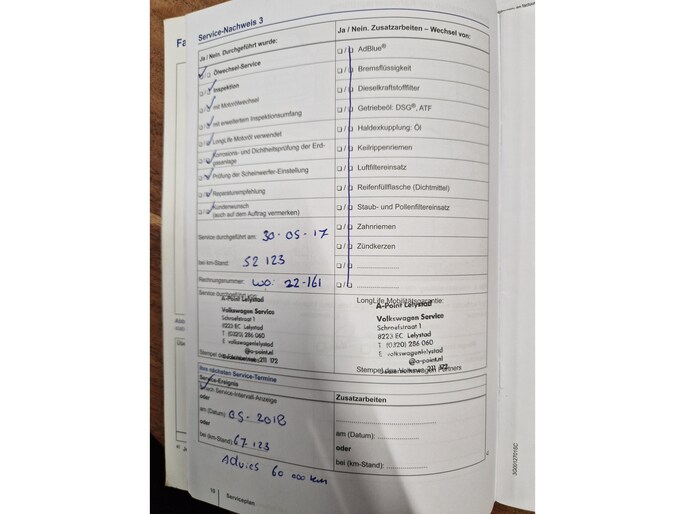 Service-Nachweis 3
Ja / Nein. Durchgeführt wurde:
Ölwechsel-Service
Inspektion
mit Motorölwechsel
mit erweitertem Inspektionsumfang
LongLife Motoröl verwendet
Korrosions- und Dichtheitsprüfung der Erd-
gasanlage
Prüfung der Scheinwerfer-Einstellung
Reparaturempfehlung
Kundenwunsch
(auch auf dem Auftrag vermerken)
Service durchgeführt am: 30-05-17
bei km-Stand: 52 123
Rechnungsnummer: WO: 22-161
Service durchgeführt
A-Point Lelystad
Volkswagen Service
Schroefstraat 1
8223 EC Lelystad
T (0320) 286 060
E volkswagenlelystad
@a-point.nl
Stempel des 211 172
Ja / Nein. Zusatzarbeiten – Wechsel von:
AdBlue®
Bremsflüssigkeit
Dieselkraftstofffilter
Getriebeöl: DSG®, ATF
Haldexkupplung: Öl
Keilrippenriemen
Luftfiltereinsatz
Reifenfüllflasche (Dichtmittel)
Staub- und Pollenfiltereinsatz
Zahnriemen
Zündkerzen
LongLife Mobilitätsgarantie:
A-Point Lelystad
Volkswagen Service
Schroefstraat 1
8223 EC Lelystad
T (0320) 286 060
E volkswagenlelystad
@a-point.nl
Stempel des Volkswagen Partners 211 172
Ihre nächsten Service-Termine
Service-Ereignis
nach Service-Intervall-Anzeige
oder
am (Datum): 05-2018
oder
bei (km-Stand): 67 123
Zusatzarbeiten
am (Datum):
oder
bei (km-Stand):
Advies 60 000 km
10 Serviceplan